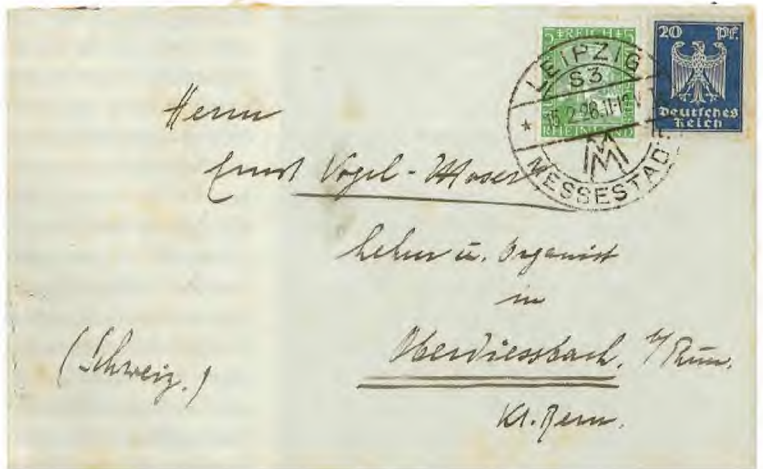 5 REICH 5
RHEINLAND
20 Pf.
Deutsches
Reich
LEIPZIG
S3
15.2.26.11-12V
MM
MESSESTADT
Herrn
Ernst Vogel-Moser
Lehrer u. Organist
in
Oberdiessbach. b/Thun.
Kt. Bern.
(Schweiz.)